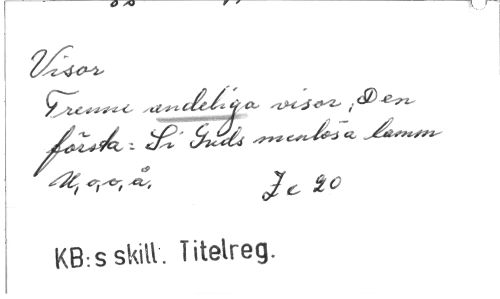 Visor
Trenne andeliga visor, Den
första: Si Guds menlösa lamm
U, o, o, å.
Z c 20
KB:s skill. Titelreg.